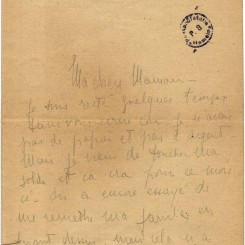 Ma chère Maman -
Je suis resté quelques temps
sans vous écrire car je n'avais
pas de papier et pas d'argent
Mais je viens de toucher ma
solde et ça ira pour ce mois
ci. On a encore essayé de
me remettre ma jambe en
mais cela n'a